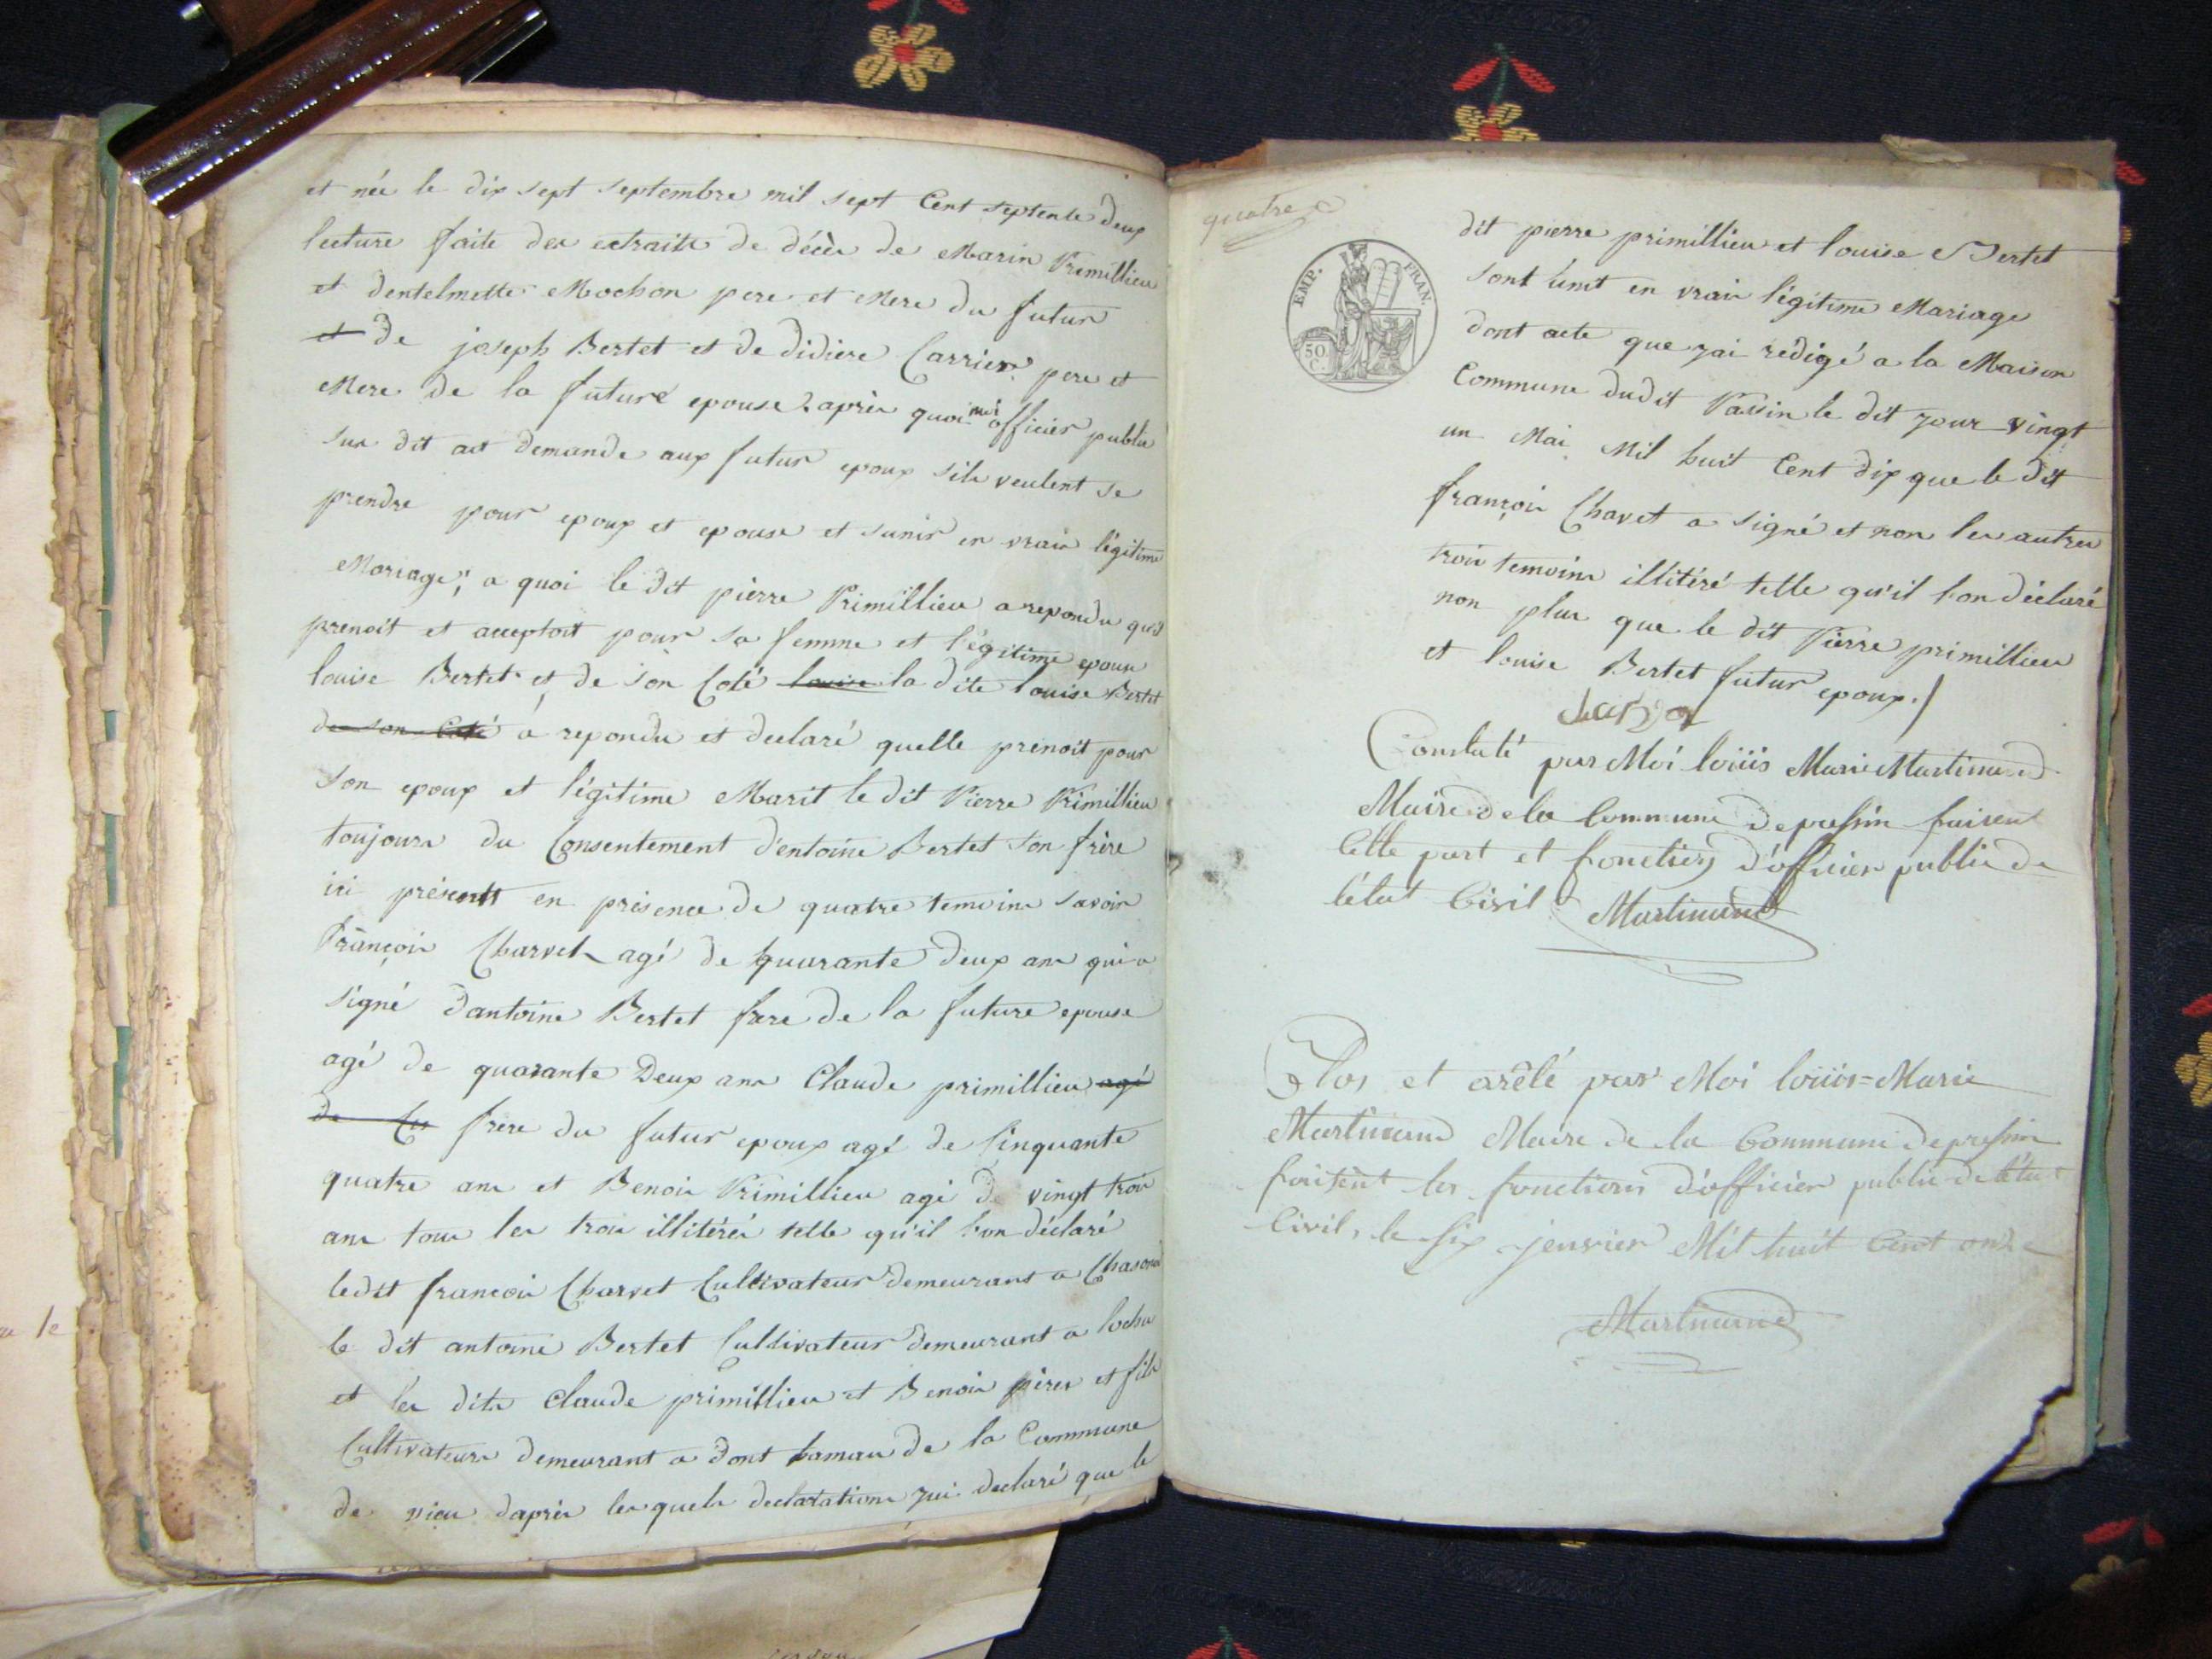 et née le dix sept septembre mil sept Cent septente deux
lecture faite des extraits de décès de Marin Primillieu
et dentelmette Mochon pere et Mere du futur
et de joseph Bertet et de didiere Carrier pere et
Mere de la future epouse. après quoi moi officier public
sus dit ait demande aux futur epoux sils veulent se
prendre pour epoux et epouse et sunir en vrais légitime
Mariage; a quoi le dit pierre Primillieu a repondu qu'il
prenoit et acceptoit pour sa femme et légitime epouse
louise Bertet et de son Coté louise la dite louise Bertet
de son Coté a repondu et declaré quelle prenoit pour
son epoux et légitime Marit le dit Pierre Primillieu
toujours du Consentement d'entoine Bertet son frère
ici présentt en présence de quatre temoins savoir
François Charvet agé de quarante deux ans qui a
signé dantoine Bertet frere de la future epouse
agé de quarante Deux ans Claude primillieu agé
de frere du futur epoux agé de Cinquante
quatre ans et Benois Primillieu agé de vingt trois
ans tous les trois illitérés telle qu'il lon déclaré
ledit francois Charvet Cultivateur demeurant a
le dit antoine Bertet Cultivateur demeurant a lochu
et les dits Claude primillieu et Benois pères et fils
Cultivateurs demeurant a dont hamau de la Commune
de vieu daprès lesquels declarations jai declaré que le
quatre
EMP. FRAN.
50 C.
dit pierre primillieu et louise Bertet
sont unit en vrais légitime Mariage
dont acte que jai redigé a la Maison
Commune dudit Passin le dit jour vingt
un Mai Mil huit Cent dix que le dit
françois Chavet a signé et non les autres
trois temoins illitéré telle qu'il lon déclaré
non plus que le dit Pierre primillieu
et louise Bertet futur epoux./
Constaté par Moi loüis Marie Martinand
Maire de la Commune de passin faisent
Cette part et fonction d'officier public de
létat Civil Martinand
Clos et arêté par Moi loüis=Marie
Martinand Maire de la Commune de passin
faisent les fonctions d'officier public de létat
Civil, le six jenvier Mil huit Cent onze
Martinand